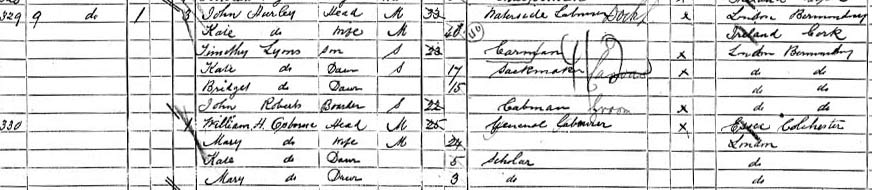 329 9 do 1 3 John Hurley Head M 33 Waterside Labourer Dock x London Bermondsey
Kate do Wife M 40 Ireland Cork
Timothy Lyons Son S 23 Carman x London Bermondsey
Kate do Daur S 17 Sackmaker x do do
Bridget do Daur 15 do do
John Roberts Boarder S 22 Cabman Groom x do do
330 William H. Osborne Head M 25 General Labourer x Essex Colchester
Mary do Wife M 24 London
Kate do Daur 5 Scholar do
Mary do Daur 3 do do